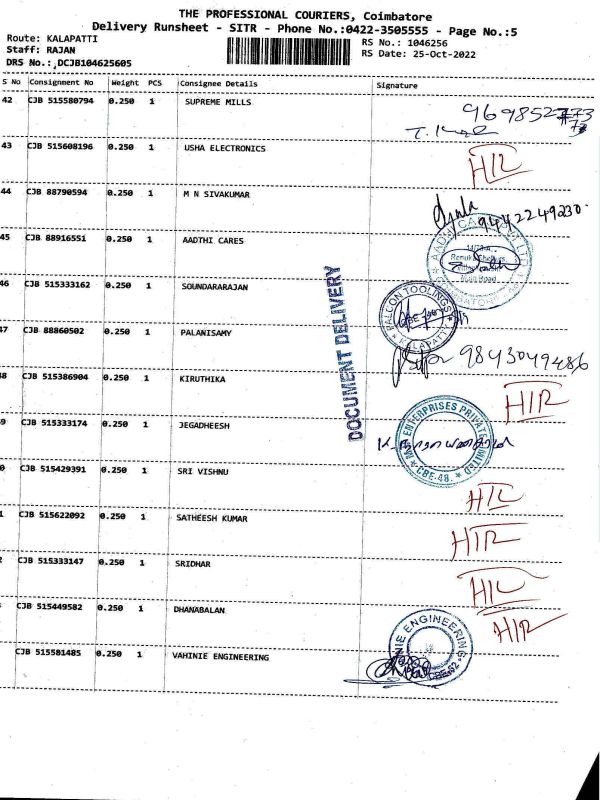 THE PROFESSIONAL COURIERS, Coimbatore
Delivery Runsheet - SITR - Phone No.:0422-3505555 - Page No.:5
Route: KALAPATTI
Staff: RAJAN
DRS No.: DCJB104625605
RS No.: 1046256
RS Date: 25-Oct-2022
S No Consignment No Weight PCS Consignee Details Signature
42 CJB 515580794 0.250 1 SUPREME MILLS
43 CJB 515608196 0.250 1 USHA ELECTRONICS H/R
44 CJB 88790594 0.250 1 M N SIVAKUMAR 9442249230
45 CJB 88916551 0.250 1 AADTHI CARES
46 CJB 515333162 0.250 1 SOUNDARARAJAN FALCON TOOLINGS KALAPATTI
47 CJB 88860502 0.250 1 PALANISAMY 9843049486
48 CJB 515386904 0.250 1 KIRUTHIKA H/R
9 CJB 515333174 0.250 1 JEGADHEESH ENTERPRISES PRIVATE LIMITED CBE-48.
0 CJB 515429391 0.250 1 SRI VISHNU
1 CJB 515622092 0.250 1 SATHEESH KUMAR H/R
CJB 515333147 0.250 1 SRIDHAR
CJB 515449582 0.250 1 DHANABALAN H/R
CJB 515581485 0.250 1 VAHINIE ENGINEERING NIE ENGINEERING
DOCUMENT DELIVERY